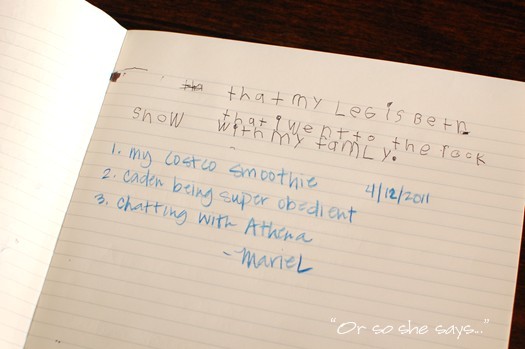 that my LEG is Betn
Show that i went to the rock
with my famLy.
1. my costco smoothie
4/12/2011
2. caden being super obedient
3. chatting with Athena
- Mariel
"Or so she says..."